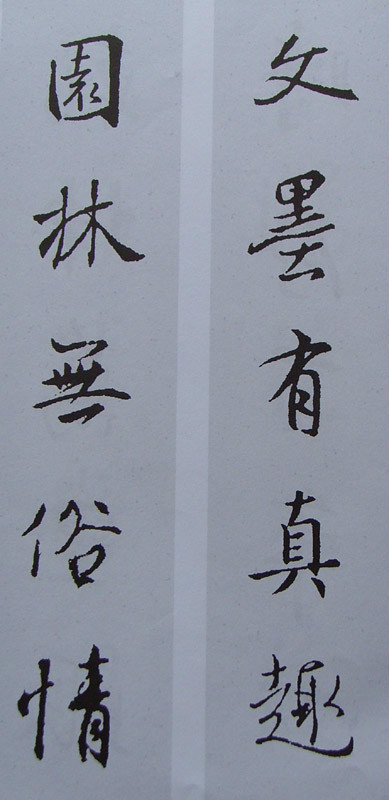 文墨有真趣
園林無俗情